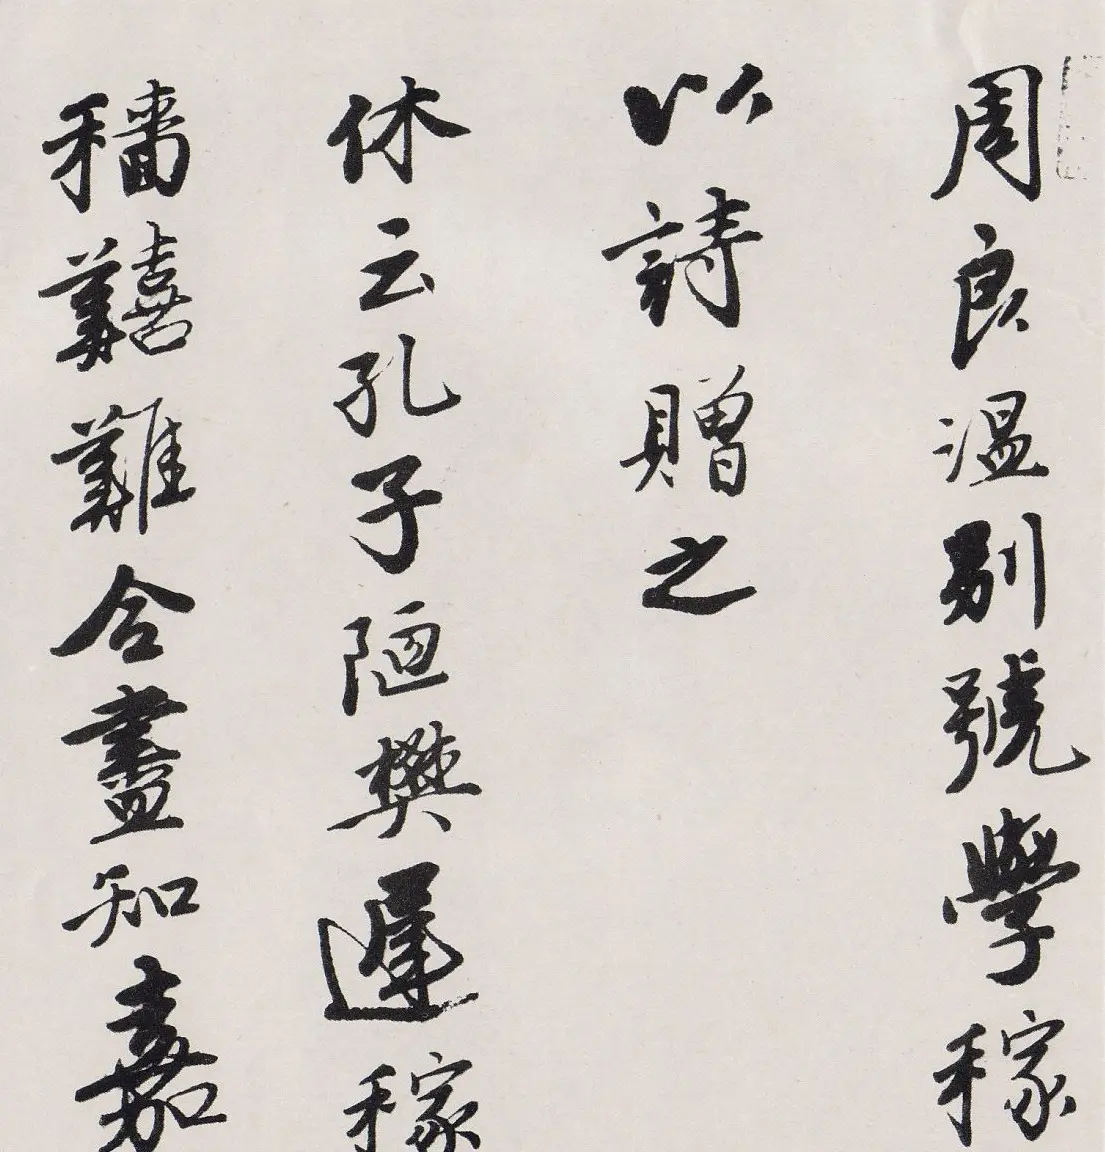 周良温别號學稼
以詩贈之
休云孔子陋樊遲稼
穡囏難合盡知嘉